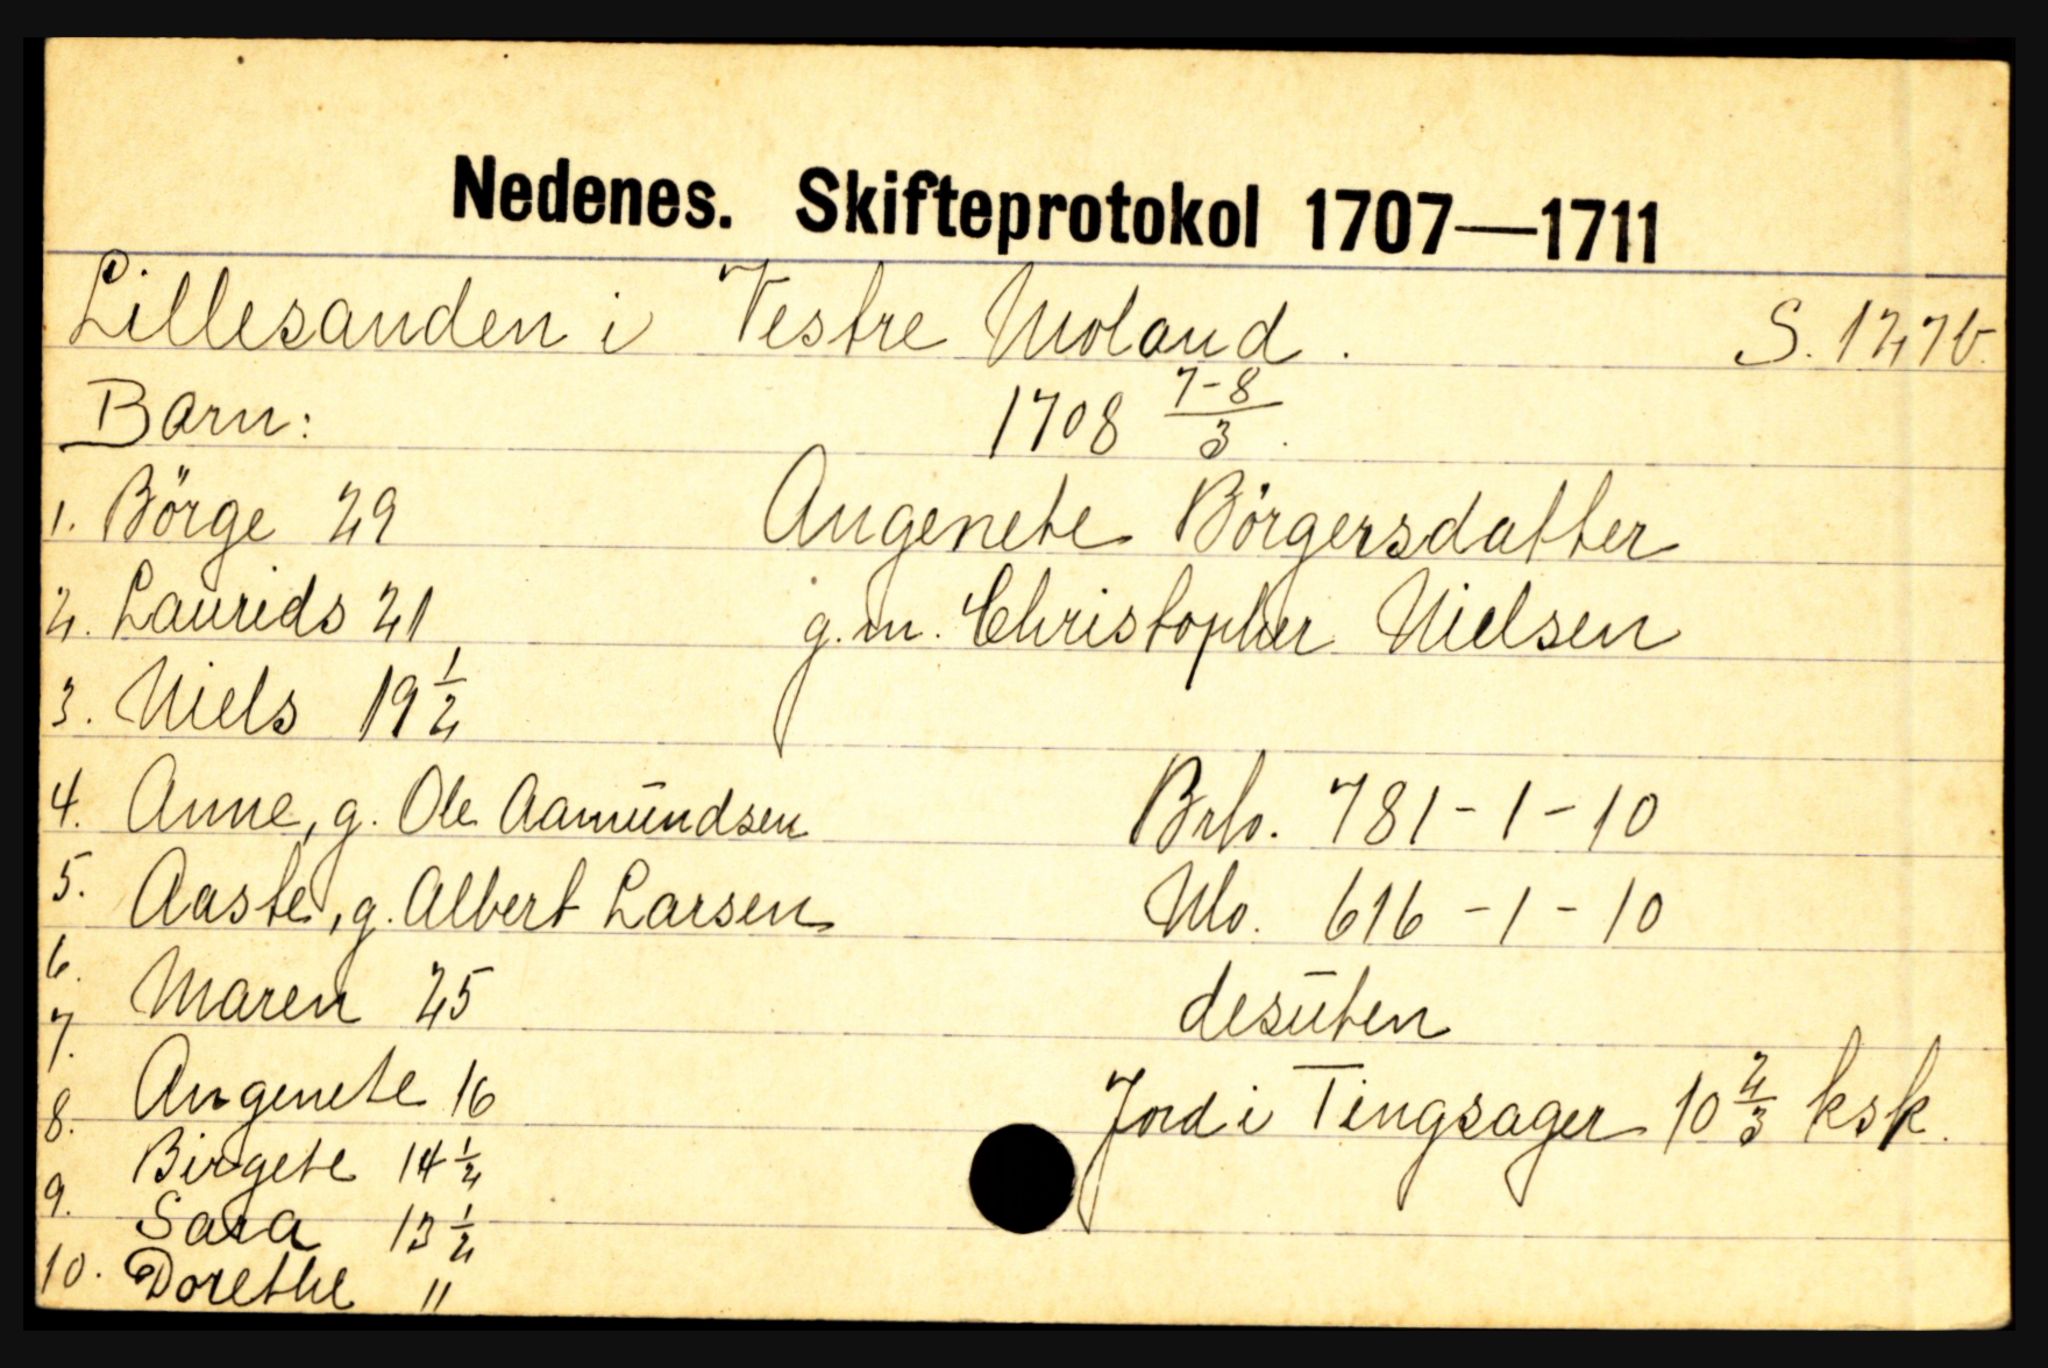 Nedenes. Skifteprotokol 1707—1711
Lillesanden i Vestre Moland. S. 127b.
Barn: 1708 7-8/3.
1. Börge 29 Angenete Börgersdatter
2. Laurids 21 g.m. Christopher Nielsen
3. Niels 19 1/2
4. Anne, g. Ole Aamundsen Brb. 781-1-10
5. Aaste, g. Albert Larsen Nb. 616-1-10
6. Maren 25 desuten
7. Angenete 16 Jord i Tingsager 10 2/3 ksk.
8. Birgete 14 1/2
9. Sara 13 1/2
10. Dorethe "